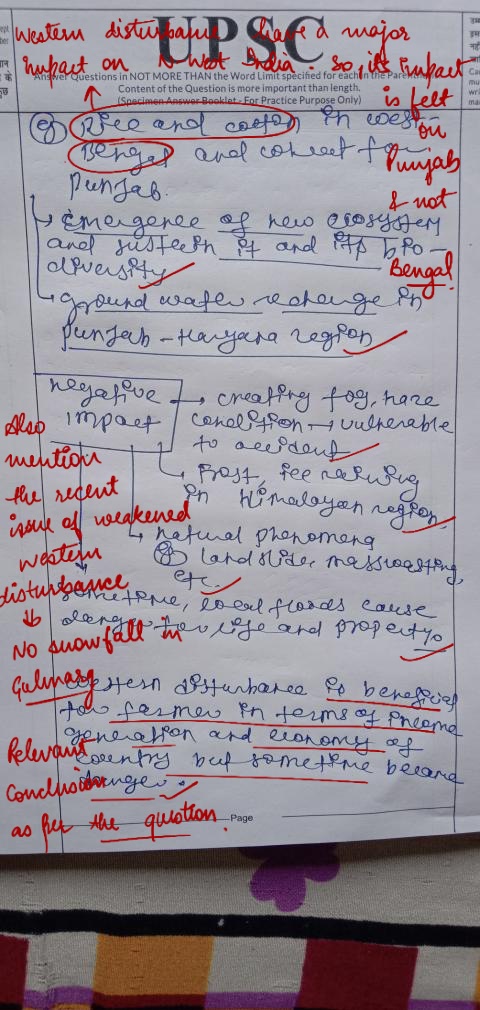 UPSC
Western disturbance have a major
impact on N-West India. So its impact
is felt
on
Punjab
& not
Bengal.
Answer Questions in NOT MORE THAN the Word Limit specified for each in the Parenthesis
Content of the Question is more important than length.
(Specimen Answer Booklet - For Practice Purpose Only)
Rice and cotton in west-
Bengal and
Punjab.
Emergence of new ecosystem
and sustain it and its bio-
diversity
ground water recharge in
Punjab - Haryana region
negative
impact
creating fog, haze
condition → vulnerable
to accident
Frost, ice raining
in Himalayan region
natural phenomena
landslide, masswasting,
etc.
sometime, local floods cause
danger for life and property.
Also
mention
the recent
issue of weakened
western
disturbance
↓
No snowfall in
Gulmarg
western disturbance is beneficial
for farmer in terms of income
generation and economy of
country but sometime became
danger.
Relevant
Conclusion
as per the question.
Page